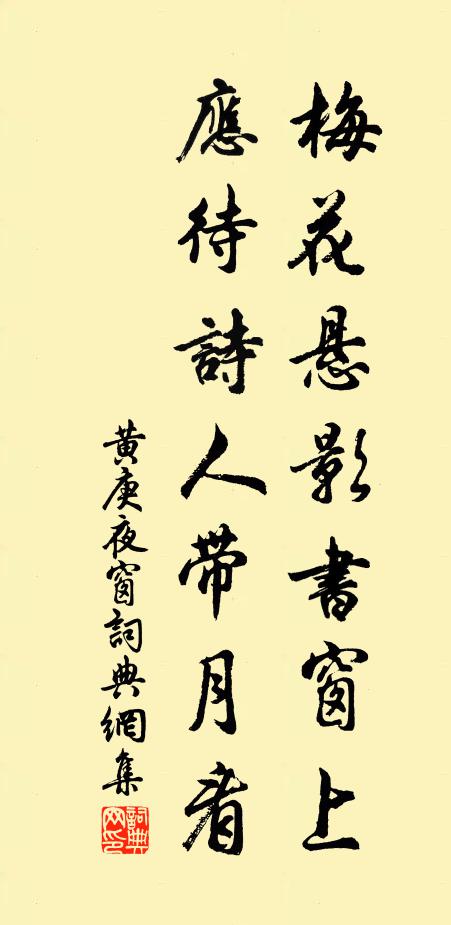 梅花悬影書窗上
應待詩人帶月看
黃庚夜窗詞典網集
詞典网印